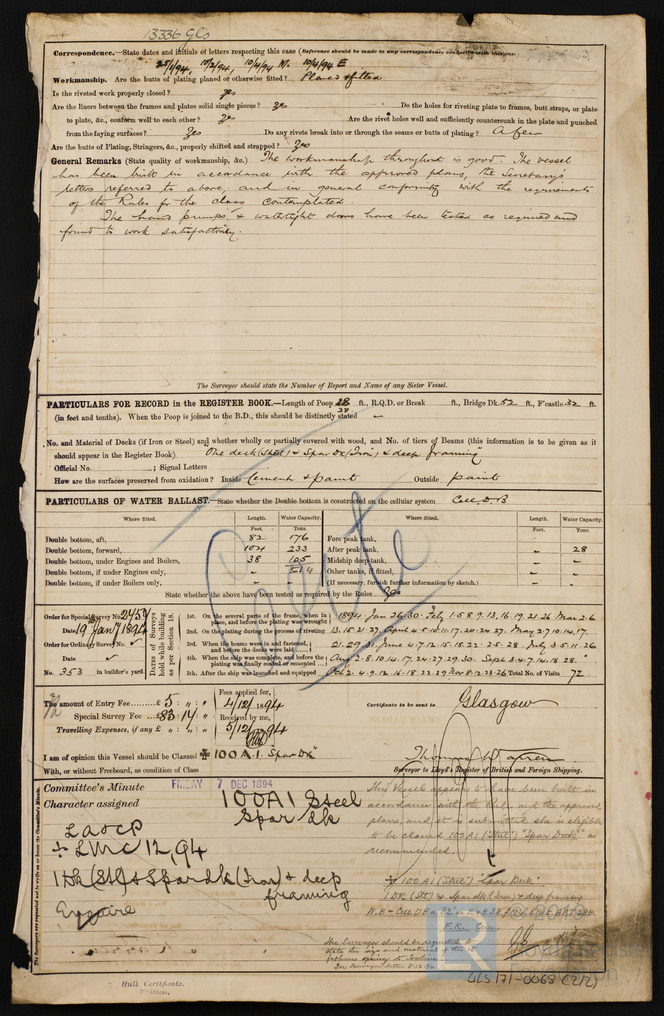 13336 Gls
Correspondence.—State dates and initials of letters respecting this case (Reference should be made to any correspondence connected with this case)
25/1/94, 10/2/94, 10/4/94 M. 10/4/94 E
Workmanship. Are the butts of plating planed or otherwise fitted? Planed & fitted
Is the riveted work properly closed? Yes
Are the liners between the frames and plates solid single pieces? Yes Do the holes for riveting plate to frames, butt straps, or plate
to plate, &c., conform well to each other? Yes Are the rivet holes well and sufficiently countersunk in the plate and punched
from the faying surfaces? Yes Do any rivets break into or through the seams or butts of plating? A few
Are the butts of Plating, Stringers, &c., properly shifted and strapped? Yes
General Remarks (State quality of workmanship, &c.) The workmanship throughout is good. The vessel
has been built in accordance with the approved plans, the Secretary's
letters referred to above, and in general conformity with the requirements
of the Rules for the class contemplated.
The hand pumps & watertight doors have been tested as required and
found to work satisfactorily.
The Surveyor should state the Number of Report and Name of any Sister Vessel.
PARTICULARS FOR RECORD in the REGISTER BOOK.—Length of Poop 28 ft., R.Q.D. or Break ft., Bridge Dk. 52 ft., F'castle 32 ft.
28
(in feet and tenths). When the Poop is joined to the B.D., this should be distinctly stated —
No. and Material of Decks (if Iron or Steel) and whether wholly or partially covered with wood, and No. of tiers of Beams (this information is to be given as it
should appear in the Register Book) One deck (Steel) & Spar Dk (Iron) & deep framing
Official No. ; Signal Letters
How are the surfaces preserved from oxidation? Inside Cement & paint Outside paint
PARTICULARS OF WATER BALLAST.—State whether the Double bottom is constructed on the cellular system Cell. D. B
Where fitted. Length. Water Capacity. Where fitted. Length. Water Capacity.
Feet. Tons. Feet. Tons.
Double bottom, aft, 82 176 Fore peak tank, – –
Double bottom, forward, 104 233 After peak tank, – 28
Double bottom, under Engines and Boilers, 38 105 Midship deep tank, – –
Double bottom, if under Engines only, – 514 Other tanks, if fitted, – –
Double bottom, if under Boilers only, – – (If necessary, furnish further information by sketch.)
State whether the above have been tested as required by the Rules Yes
Order for Special Survey No. 2454
Date 19 Jany 1894
Order for Ordinary Survey No. ✓
Date ✓
No. 353 in builder's yard.
Dates of Surveys held while building as per Section 18.
1st. On the several parts of the frame, when in place, and before the plating was wrought 1894. Jan 26.30. Feby 1.5.8.9.13.16.19.21.26 Mar 2.6
2nd. On the plating during the process of riveting 13.15.21.27 April 4.5.10.11.17.20.24.27. May 2.7.10.14.17.
3rd. When the beams were in and fastened, and before the decks were laid 21.29.31. June 4.7.12.15.18.22.25.28. July 3.5.11.26
4th. When the ship was complete, and before the plating was finally coated or cemented Aug 2.8.10.14.17.24.27.29.30. Sept 3.4.7.14.18.28.
5th. After the ship was launched and equipped Oct 2.4.9.12.16.18.22.29 Nov 8.12.23.26 Total No. of Visits 72
The amount of Entry Fee £5 : „ : „ Fees applied for, 4/12/1894
Special Survey Fee £83 : 14 : „ Received by me,
Travelling Expenses, if any £ „ : „ : „ 5/12/94
Certificate to be sent to Glasgow
I am of opinion this Vessel should be Classed ✠ 100 A.1. "Spar Dk"
With, or without Freeboard, as condition of Class
Surveyor to Lloyd's Register of British and Foreign Shipping.
Committee's Minute FRIDAY 7 DEC 1894
Character assigned 100A1 Steel
Spar dk
LA&CP
+ LMC 12,94
1 Dk (Stl) & Spar dk (Iron) & deep
framing
This Vessel appears to have been built in
accordance with the Rules and the approved
plans, and it is submitted she is eligible
to be classed 100A1 (Steel) "Spar Deck" as
recommended.
✠ 100A1 (Steel) "Spar Deck"
1 DK (Stl) & Spar dk (Iron) & deep framing
The Surveyor should be requested to
state the size and material of the
Hull Certificate.
Written.
The Surveyors are requested not to write on or below the Committee's Minute.
GLS 171-0068 (2/2)